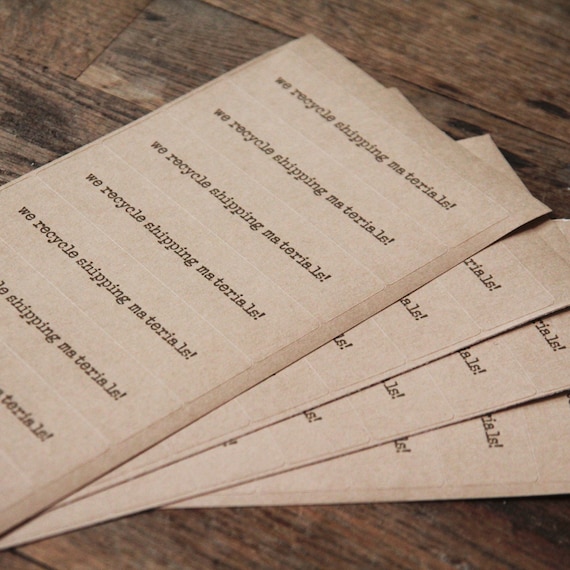 we recycle shipping materials!
we recycle shipping materials!
we recycle shipping materials!
we recycle shipping materials!
we recycle shipping materials!
shipping materials!